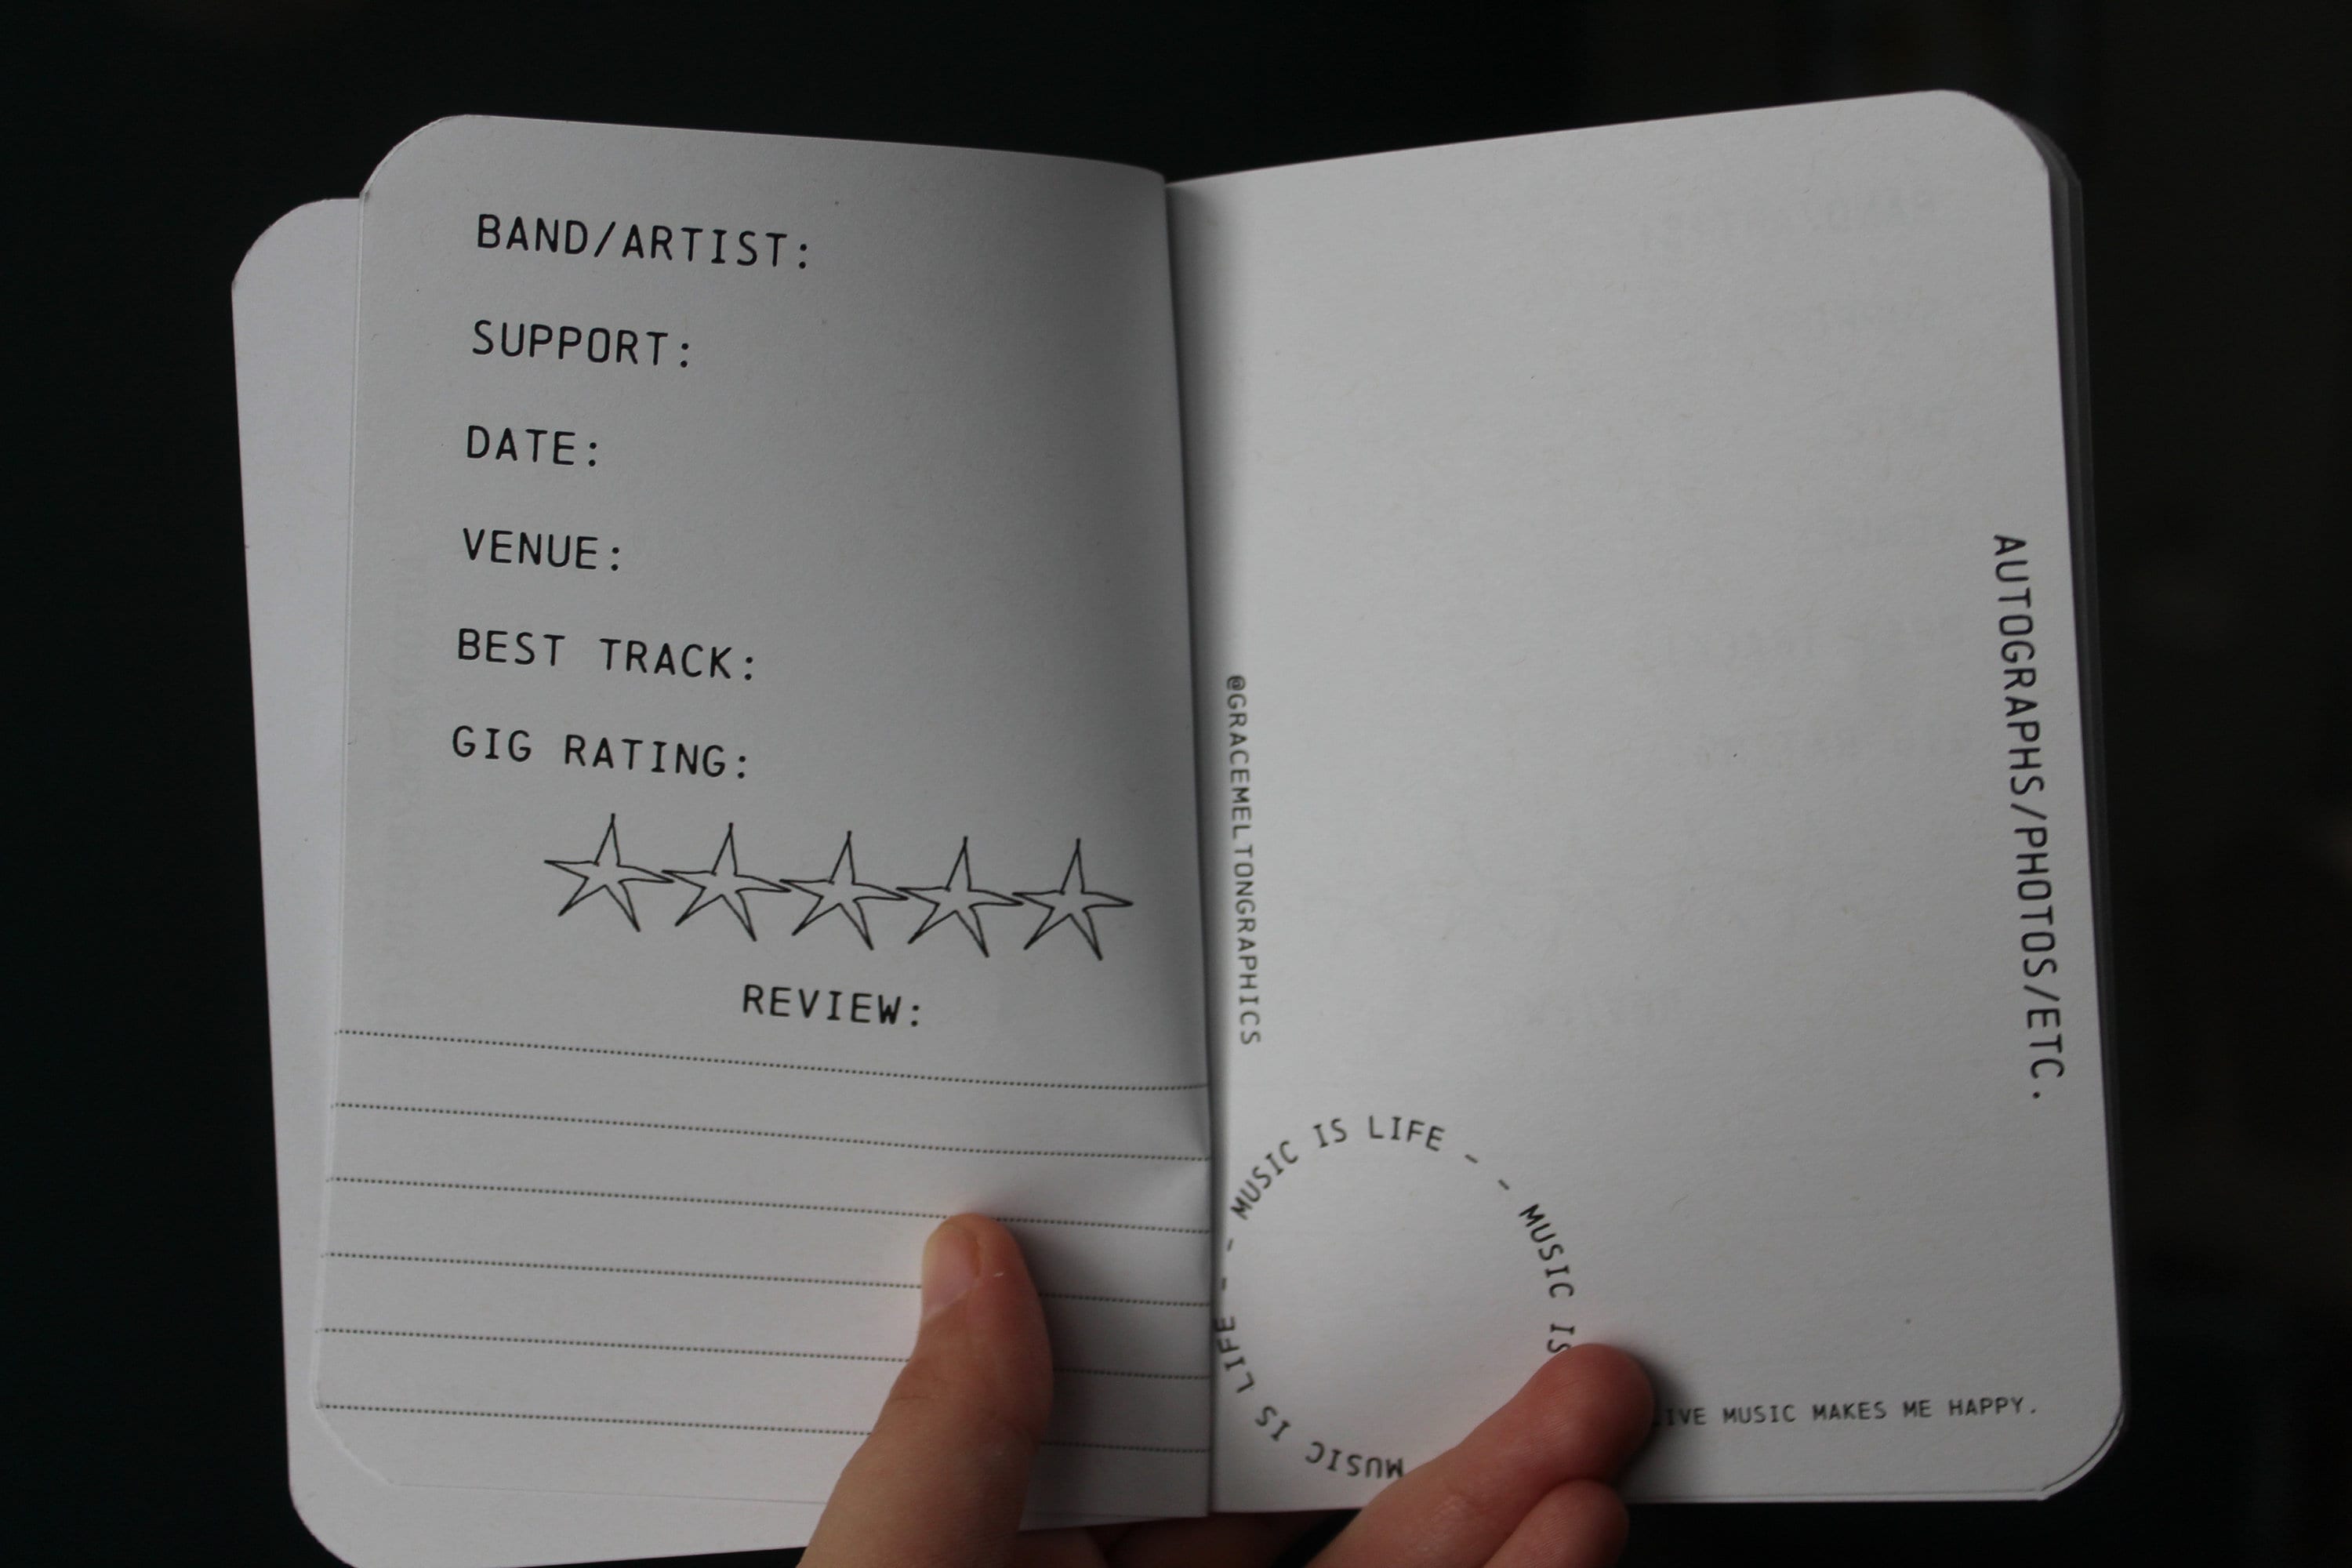 BAND/ARTIST:
SUPPORT:
DATE:
VENUE:
BEST TRACK:
GIG RATING:
REVIEW:
@GRACEMELTONGRAPHICS
AUTOGRAPHS/PHOTOS/ETC.
MUSIC IS LIFE - - MUSIC IS
MUSIC IS LIFE - -
MUSIC MAKES ME HAPPY.